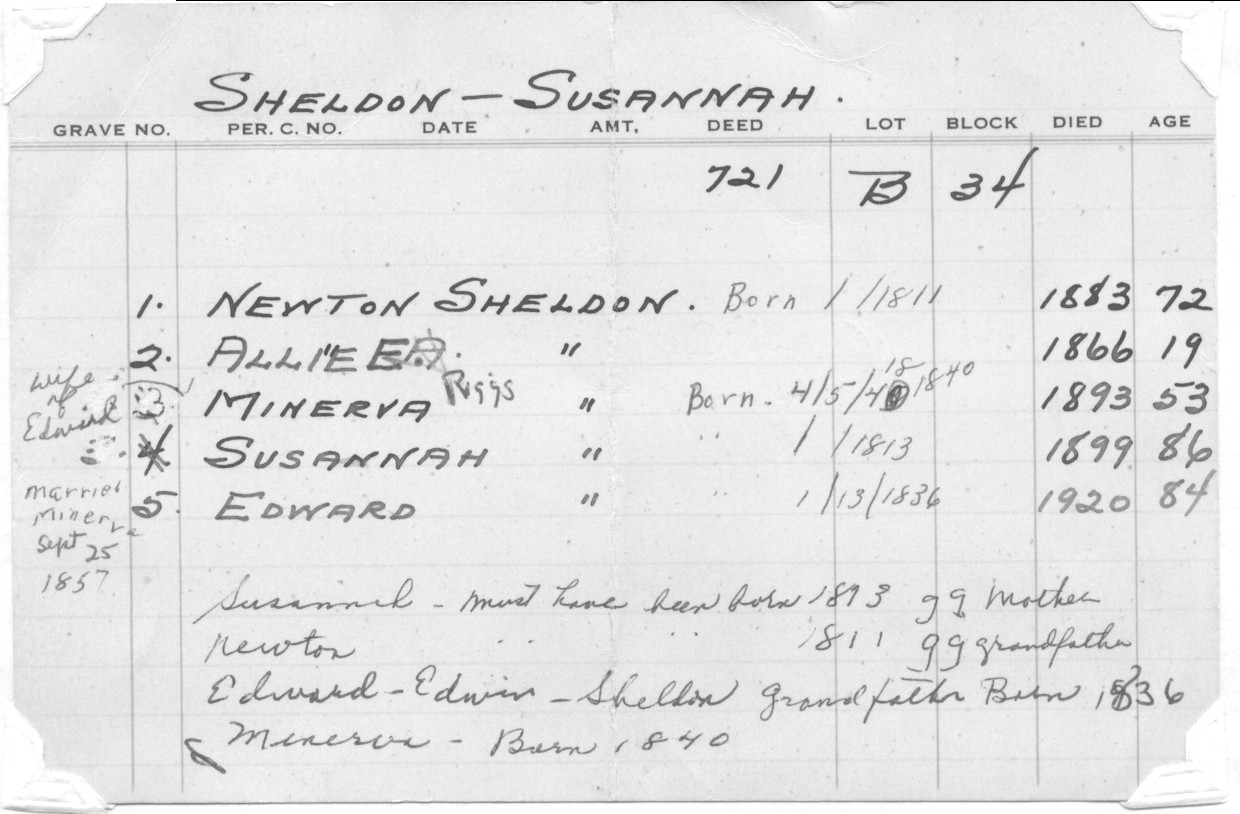 SHELDON — SUSANNAH.
GRAVE NO. PER. C. NO. DATE AMT. DEED LOT BLOCK DIED AGE
721 B 34
1. NEWTON SHELDON. Born / /1811 1883 72
2. ALLIE " 1866 19
wife of Edward
MINERVA Riggs " Born. 4/5/ 18 1840 1893 53
4. SUSANNAH " " / /1813 1899 86
5. EDWARD " " 1/13/1836 1920 84
married
Minerva
Sept 25
1857
Susannah - must have been born 1893 gg Mother
Newton " " 1811 gg grandfather
Edward - Edwin - Sheldon grandfather Born 1836
Minerva - Born 1840